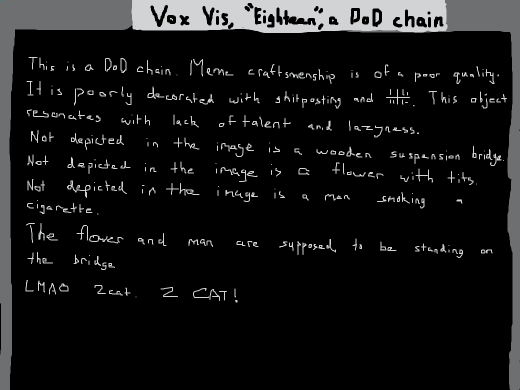 Vox Vis, "Eighteen", a DoD chain
This is a DoD chain. Meme craftsmenship is of a poor quality.
It is poorly decorated with shitposting and. This object
resonates with lack of talent and lazyness.
Not depicted in the image is a wooden suspension bridge.
Not depicted in the image is a flower with tits.
Not depicted in the image is a man smoking a
cigarette.
The flower and man are supposed to be standing on
the bridge
LMAO 2cat. 2 CAT!